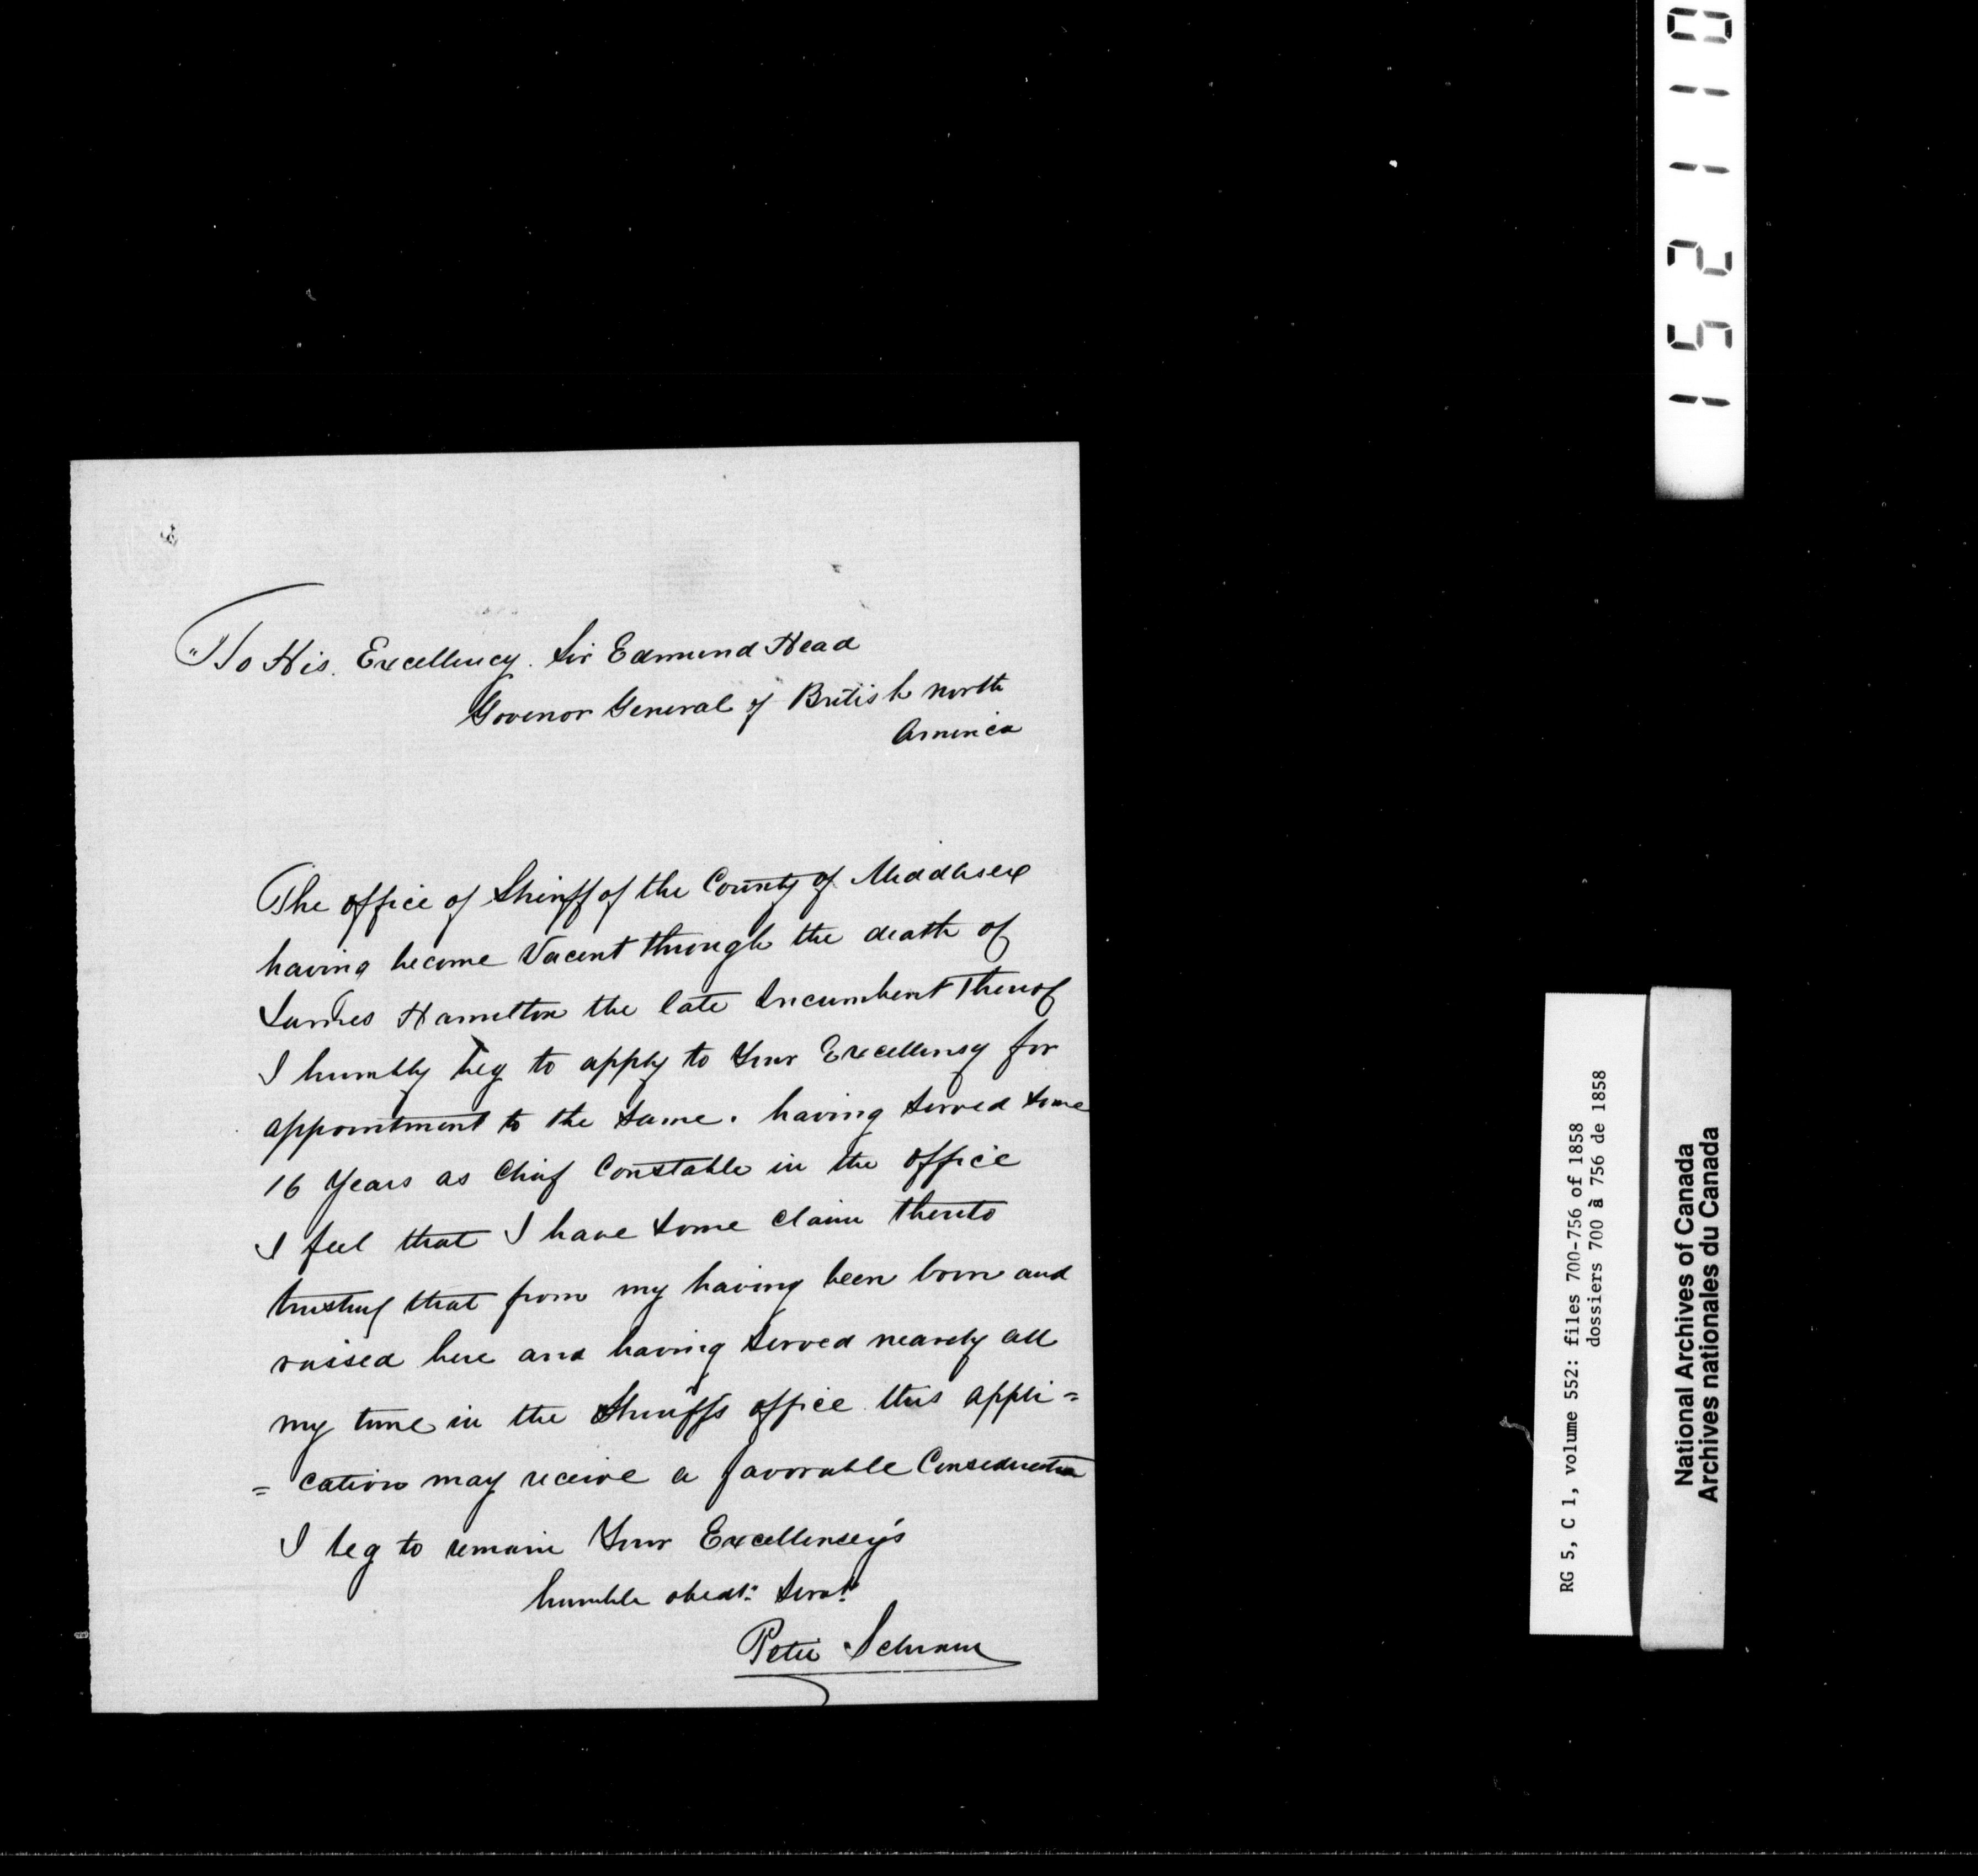 To His. Excellency. Sir Edmund Head
Govenor General of British north
America
The office of Sheriff of the County of Middlesex
having become Vacent through the death of
James Hamilton the late Incumbent Thereof
I humbly beg to apply to Your Excellency for
appointment to the Same. having Served Some
16 Years as Chief Constable in the office
I feel that I have Some Claim thereto
trusting that from my having been born and
raised here and having Served nearly all
my time in the Sheriffs office this appli=
=cation may receive a favorable Consideration
I beg to remain Your Excellencey's
humble obedt. Servt.
Peter Schram
152110
RG 5, C 1, volume 552: files 700-756 of 1858
dossiers 700 à 756 de 1858
National Archives of Canada
Archives nationales du Canada